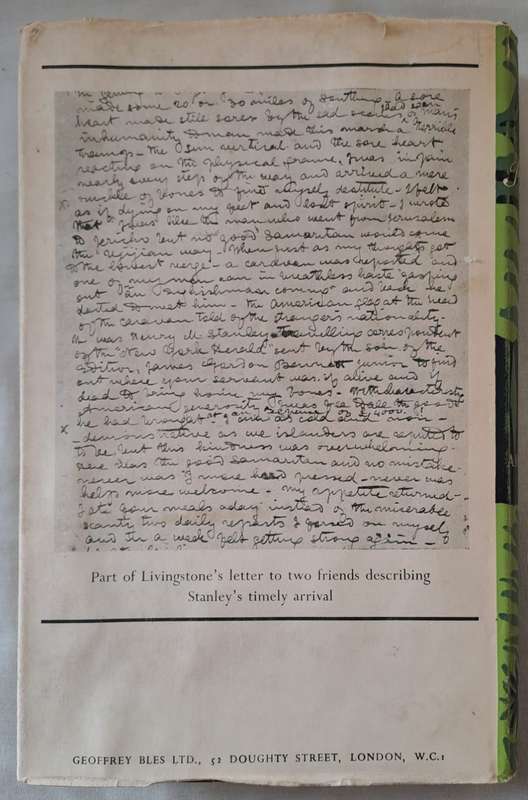 made some 20 or 30 miles of Southing. A sore
heart made still sorer by the sad scenes I had seen of man's
inhumanity to man made this march a terrible
the sun vertical and the sore heart
reacting on the physical frame, I was in pain
nearly every step of the way and arrived a mere
ruckle of bones to find myself destitute - I felt
as if dying on my feet and lost spirit - I wrote
that I was like the man who went from Jerusalem
to Jericho but no good Samaritan would come
the Ujijian way - When just as my thoughts got
to the lowest verge - a caravan was reported and
one of my men ran in breathless haste gasping
out "An Englishman coming" and back he
darted to meet him - the American flag at the head
of the caravan told of the stranger's nationality.
It was Henry M Stanley travelling correspondent
of the "New York Herald" sent by the son of the
editor, James Gordon Bennett junior to find
out where your servant was if alive and if
dead to bring home my bones - With characteristic
American generosity
he had brought at an expense of £4,000!
demonstrative as we islanders are reputed to
to be but this kindness was overwhelming -
Here was the good Samaritan and no mistake
never was I more hard pressed - never was
help more welcome - my appetite returned -
I ate four meals a day instead of the miserable
scanty two daily repasts I forced on myself
and in a week felt getting strong again - I
Part of Livingstone's letter to two friends describing
Stanley's timely arrival
GEOFFREY BLES LTD., 52 DOUGHTY STREET, LONDON, W.C.1